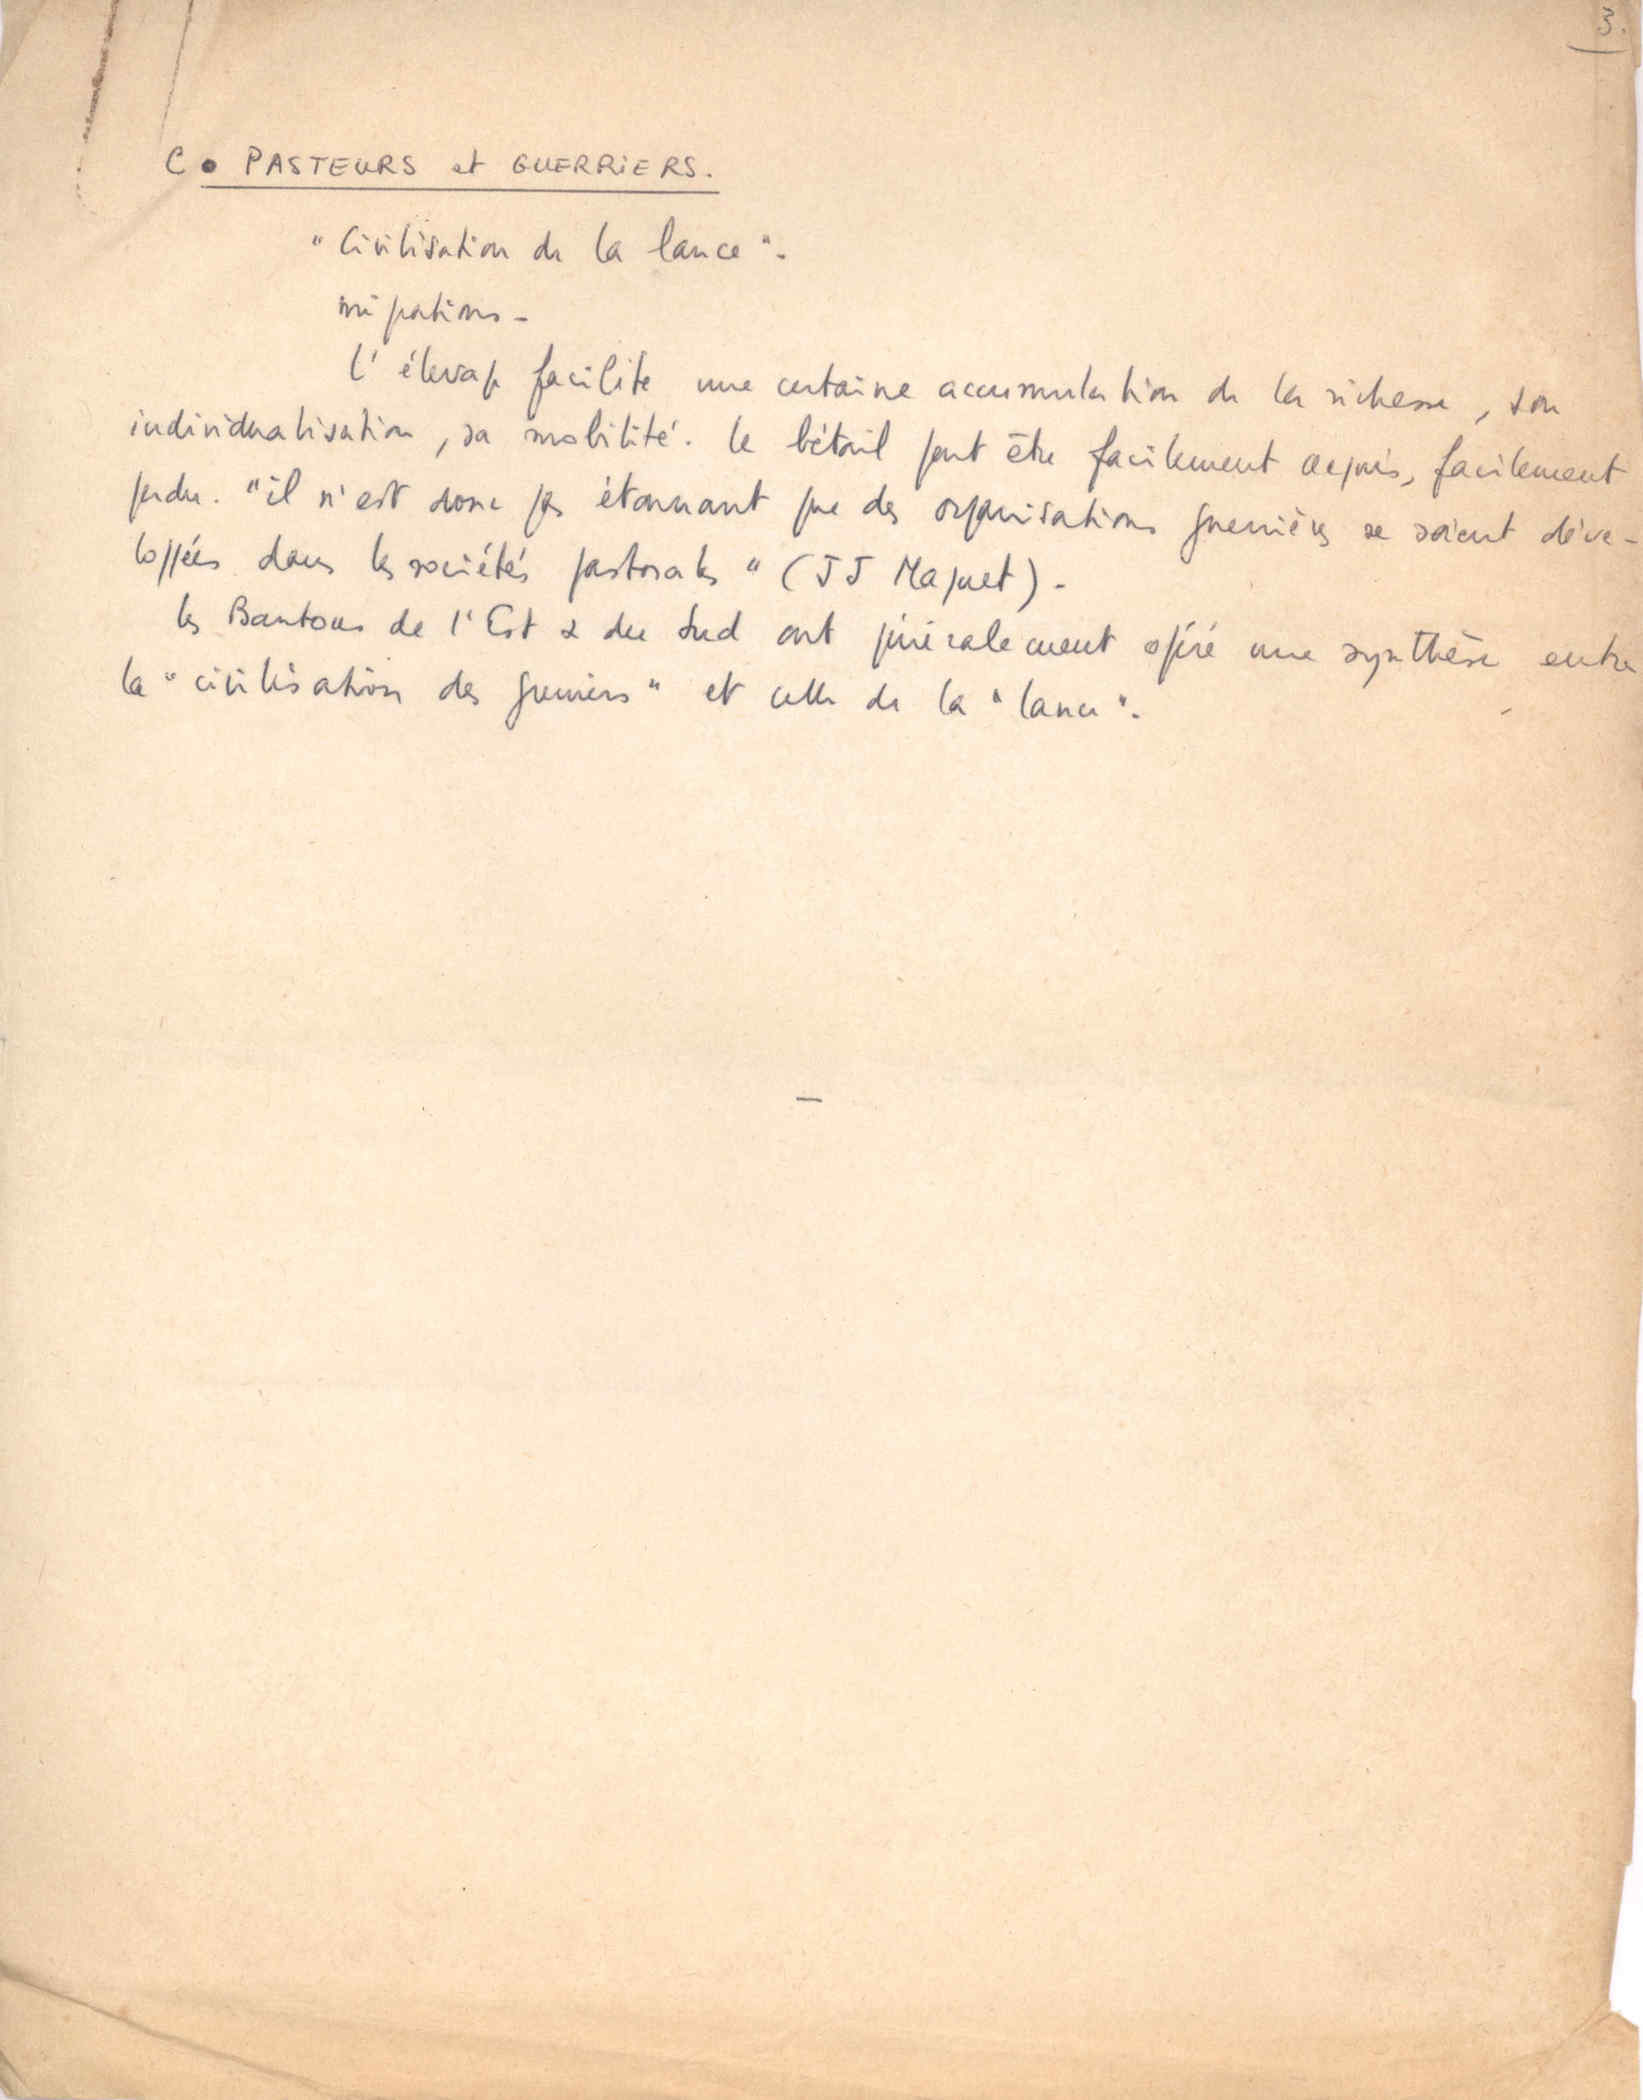 3.
C. PASTEURS et GUERRIERS.
"Civilisation de la lance".
migrations -
l'élevage facilite une certaine accumulation de la richesse, son
individualisation, sa mobilité. le bétail peut être facilement acquis, facilement
perdu. "il n'est donc pas étonnant que des organisations guerrières se soient déve-
loppées dans les sociétés pastorales" (JJ Maquet).
les Bantous de l'Est & du Sud ont généralement opéré une synthèse entre
la "civilisation des greniers" et celle de la "lance".